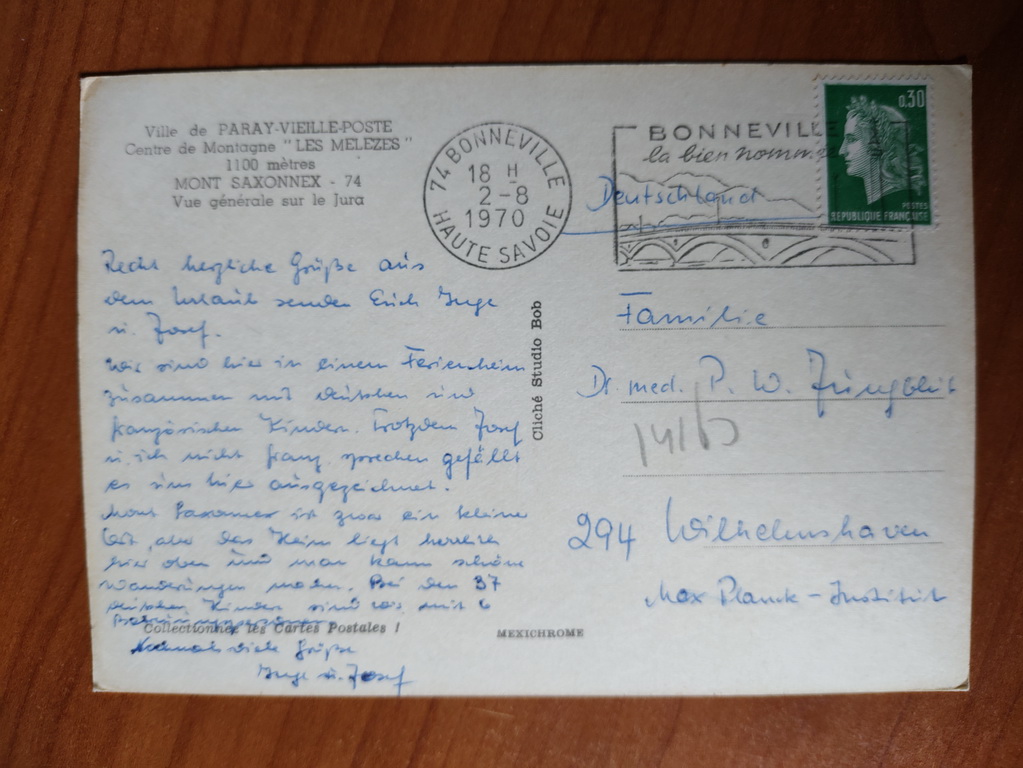 Ville de PARAY-VIEILLE-POSTE
Centre de Montagne "LES MELEZES"
1100 mètres
MONT SAXONNEX - 74
Vue générale sur le Jura
74 BONNEVILLE
18 H
2-8
1970
HAUTE SAVOIE
BONNEVILLE
la bien nommée
0,30
POSTES
REPUBLIQUE FRANÇAISE
Deutschland
Recht herzliche Grüße aus
dem Urlaub senden Erich Inge
u. Josef.
Wir sind hier in einem Ferienheim
zusammen mit deutschen und
französischen Kindern. Trotzdem Josef
u. ich nicht franz. sprechen gefällt
es uns hier ausgezeichnet.
Mont Saxonnex ist zwar ein kleiner
Ort, aber das Heim liegt
hier oben und man kann schöne
Wanderungen machen. Bei den 37
deutschen Kindern sind wir mit 6
Nochmals viele Grüße
Inge u. Josef
Collectionnez les Cartes Postales !
Cliché Studio Bob
MEXICHROME
Familie
Dr. med. P. W. Jungbluth
294 Wilhelmshaven
Max Planck-Institut